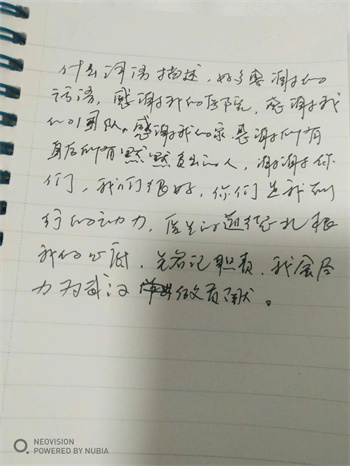 什么词语描述,好多感谢的
话语,感谢我的医院,感谢我
们的团队。感谢我的家,感谢所有
身后所有默默支出的人,谢谢你
们,我们很好,你们是我们前
行的动力,医生的道德扎根
我的心底,先启记职责,我会尽
力为武汉做贡献。
NEOVISION
POWERED BY NUBIA